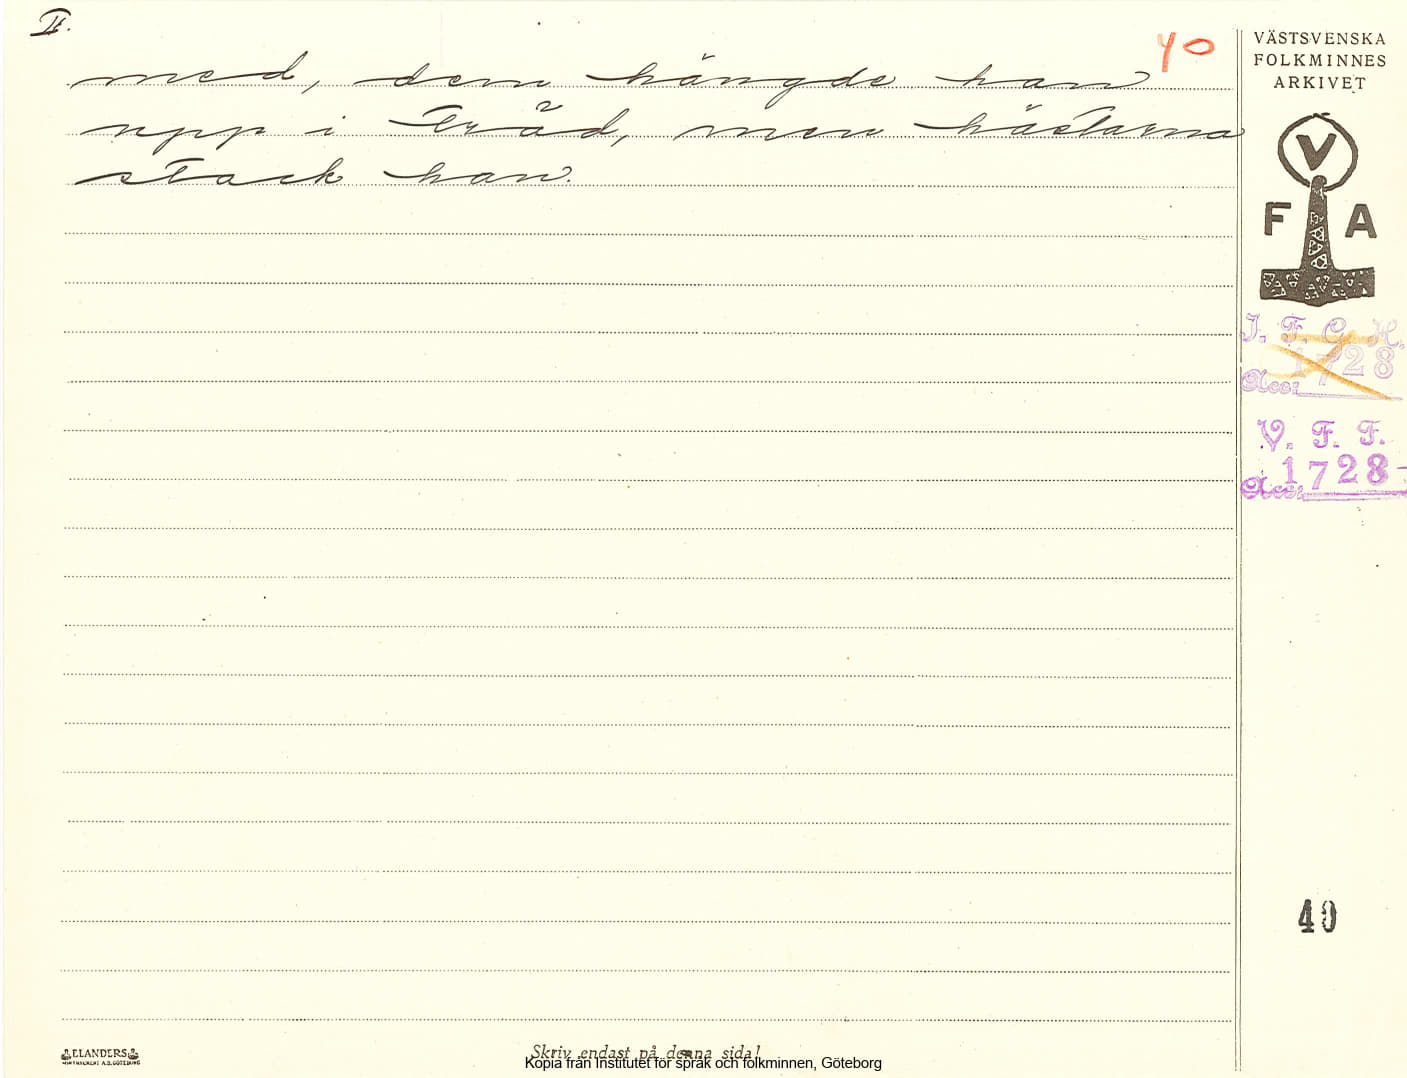 II.
40
med, dem hängde han
upp i träd, men hästarna
stack han.
VÄSTSVENSKA
FOLKMINNES
ARKIVET
V
F A
I. F. G. H.
Acc: 1728
V. F. F.
Acc: 1728
40
ELANDERS
Skriv endast på denna sida!
Kopia från Institutet för språk och folkminnen, Göteborg